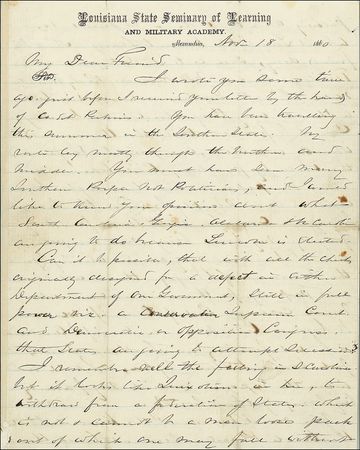 Louisiana State Seminary of Learning
AND MILITARY ACADEMY.
Alexandria, Nov. 18 1860
My Dear Friend
I wrote you some time
ago just before I received your letter by the hands
of Cadet You have been travelling
this summer in the Southern States. My
route lay mostly through the Northern and
Middle. You must have seen many
Southern People not Politicians, and I would
like to know your opinions about what
South Carolina Georgia Alabama &
are going to do because Lincoln is elected.
Can it be possible, that with all the checks
originally designed for a defect in either
Department of our Government, still in full
power viz. a Conservative Supreme Court
and Democratic or Opposition Congress
that States are going to attempt Secession?
I remember well the feeling in
but it looks like to me, to
withdraw from a federation of States which
is not & cannot be a mere loose pack
out of which one may fall without